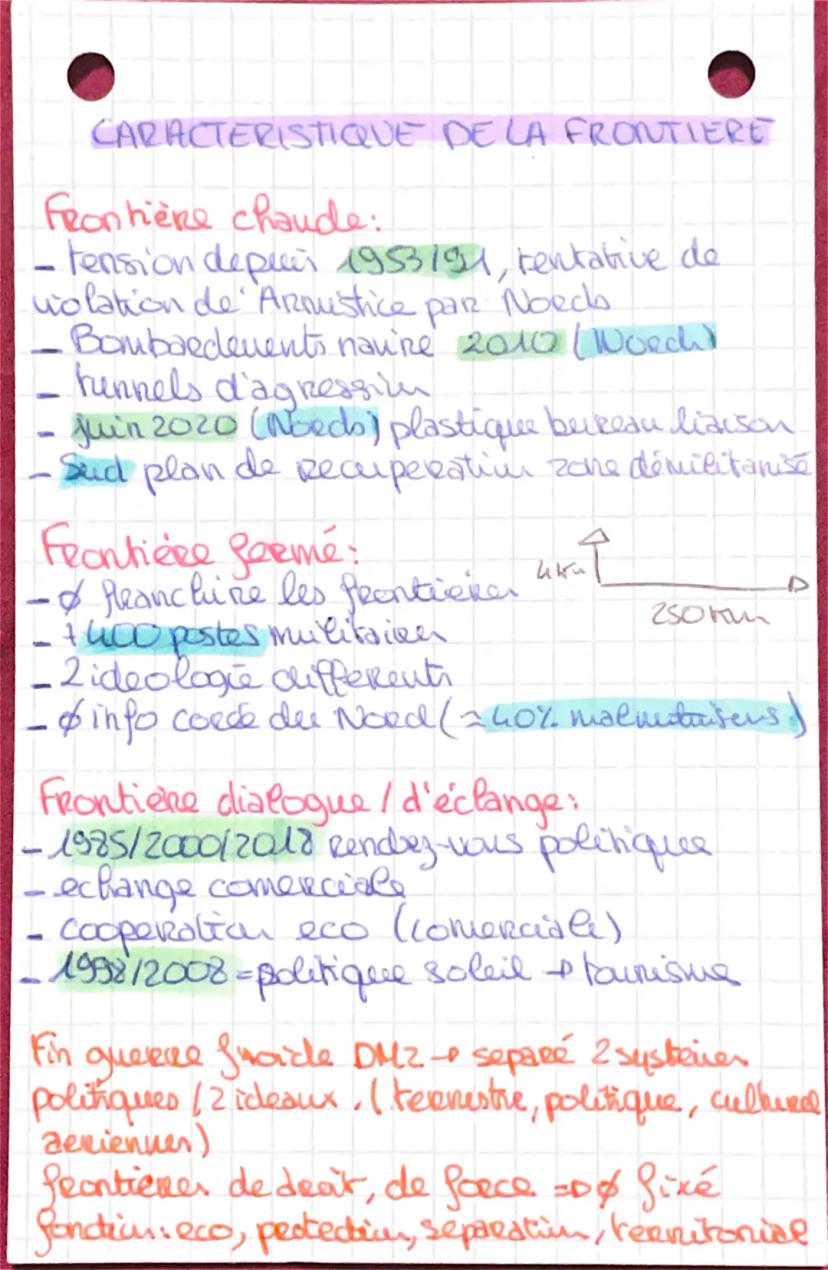 CARACTERISTIQUE DE LA FRONTIERE
Frontière chaude:
- tension depuis 1953/91, tentative de
violation de Armistice par Nords
- Bombardements navire 2010 (Nord)
- tunnels d'agression
- juin 2020 (Nords) plastique bureau liaison
- Sud plan de recuperation zone démilitarisé
Frontière fermé:
4km
- ∅ franchire les frontières
250 km
- + 400 postes militaires
- 2 ideologie differents
- ∅ info corée du Nord (≈ 40%
Frontière dialogue / d'échange:
- 1985/2000/2018 rendez-vous politiques
- echange comerciale
- cooperation eco (comerciale)
- 1998/2008 = politique soleil → tourisme
Fin guerre froide DMZ → separé 2 systèmes
politiques / 2 ideaux. (terrestre, politique, culturel
aeriennes)
frontières de droit, de force => ∅ fixé
fonction: eco, protection, separation, territoriale